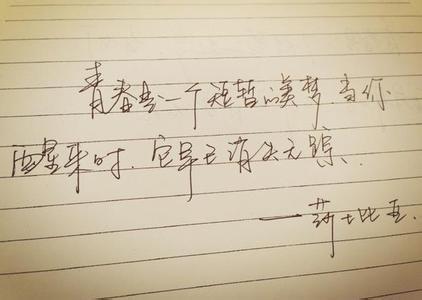 青春是一个短暂的美梦,当你
醒来时,它早已消失无踪
——莎士比亚.